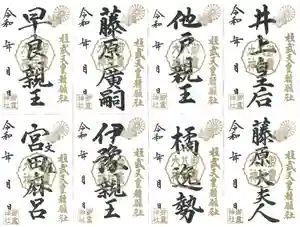 井上皇后
桓武天皇勅願社
令和 年 月 日
他戸親王
桓武天皇勅願社
令和 年 月 日
藤原廣嗣
桓武天皇勅願社
令和 年 月 日
早良親王
桓武天皇勅願社
令和 年 月 日
藤原大夫人
桓武天皇勅願社
令和 年 月 日
橘逸勢
桓武天皇勅願社
令和 年 月 日
伊豫親王
桓武天皇勅願社
令和 年 月 日
文屋
宮田麻呂
桓武天皇勅願社
令和 年 月 日